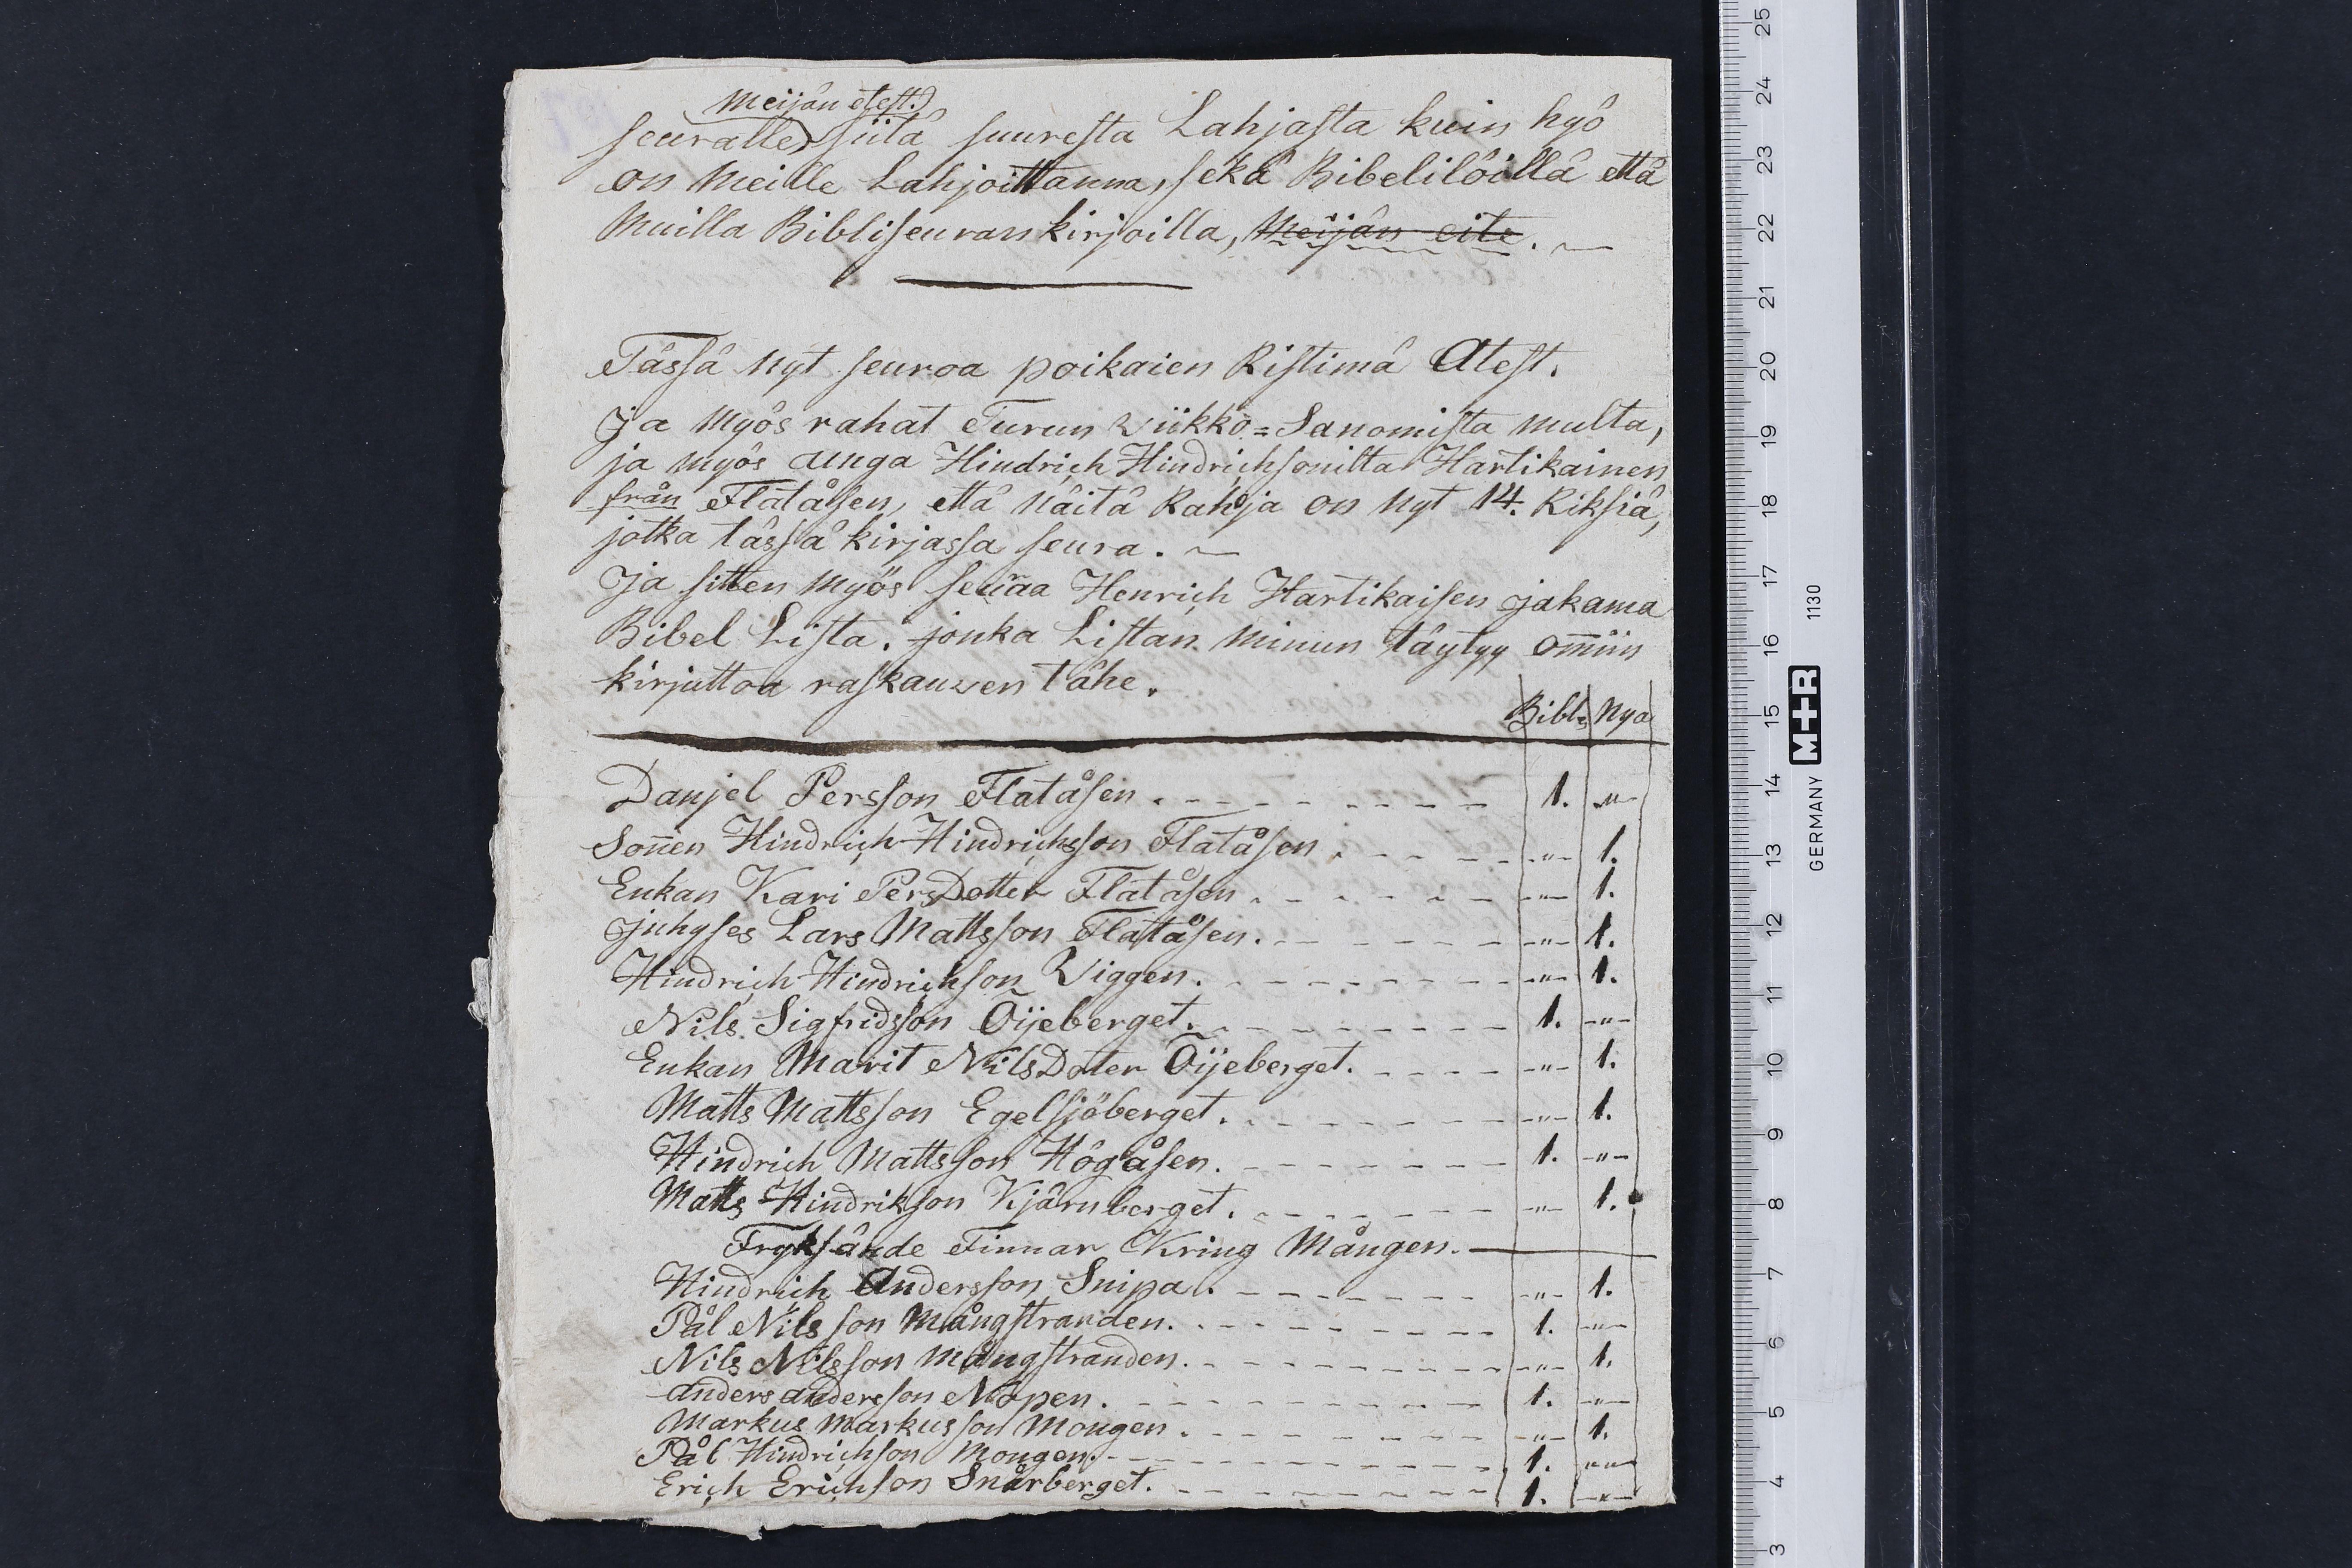 Meijän etest.)
seuralle) siitä suuresta Lahjasta kuin hyö
on Meille Lahjoittanna, sekä Bibelilöillä että
Muilla Bibliseuran kirjoilla, Meijän eite. —
Tässä nyt seuroa poikaien Ristimä Atest.
Ja Myös rahat Turun Viikko=Sanomista multa,
ja myös aunga Hindrich Hindrichsonilta Hartikainen
från Flatåsen, että näitä Rahoja on nyt 14. Riksiä,
jotka tässä kirjassa seura. —
Ja sitten Myös seuraa Henrich Hartikaisen jakama
Bibel Lista. jonka Listan Minun täytyy om̅iin
kirjuttoa raskauven tähe.
Bibl. Nya
Danjel Persson Flatåsen. 1. -"-
Son̅en Hindrich Hindrichsson Flatåsen. -"- 1.
Enkan Kari PersDotter Flatåsen. -"- 1.
Juhyses Lars Mattsson Flatåsen. -"- 1.
Hindrich Hindrichson Viggen. -"- 1.
Nils Sigfridsson Öijeberget. 1. -"-
Enkan Marit NilsDoter Öijeberget. -"- 1.
Matts Mattsson Egelsjöberget. -"- 1.
Hindrich Mattsson Högåsen. 1. -"-
Matts Hindrikson Kjärnberget. -"- 1.
Fryksände Finnar Kring Mången.
Hindrich Andersson Snipa. -"- 1.
Pål Nilsson Mångstranden. 1. -"-
Nils Nilsson Mångstranden. -"- 1.
Anders andersson Nopen. 1. -"-
Markus Markusson Mongen. -"- 1.
Pål Hindrichson Mongen. 1. -"-
Erich Erichson Snårberget. 1. -"-
25
24
23
22
21
20
19
18
17
16
15
14
13
12
11
10
9
8
7
6
5
4
3
GERMANY M+R 1130